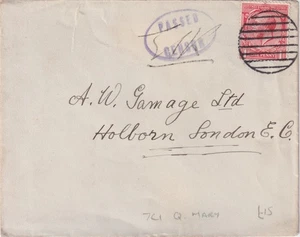 PASSED
CENSOR
A. W. Gamage Ltd
Holborn London E.C.
Q. MARY
£15